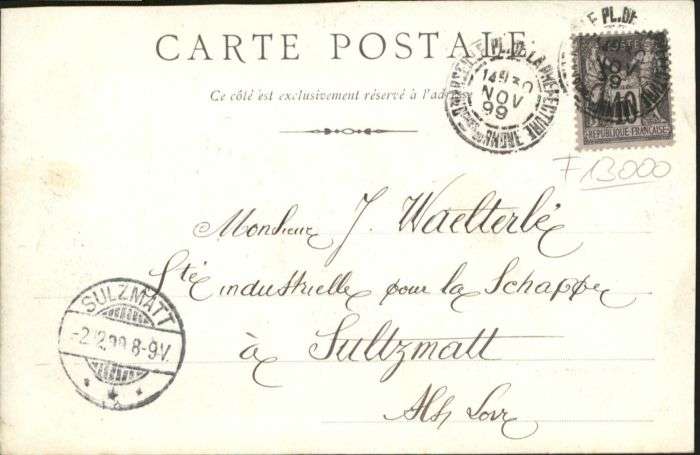 CARTE POSTALE
Ce côté est exclusivement réservé à l'adresse
PL. DE LA PRÉFECTURE
14 30
NOV
99
RHONE
LE PL. DE
NOV
10
RÉPUBLIQUE FRANÇAISE
F 13000
Monsieur J. Waelterlé
Sté industrielle pour la Schappe
à Sultzmatt
Als Lorr
SULZMATT
-2.12.99 8-9V.